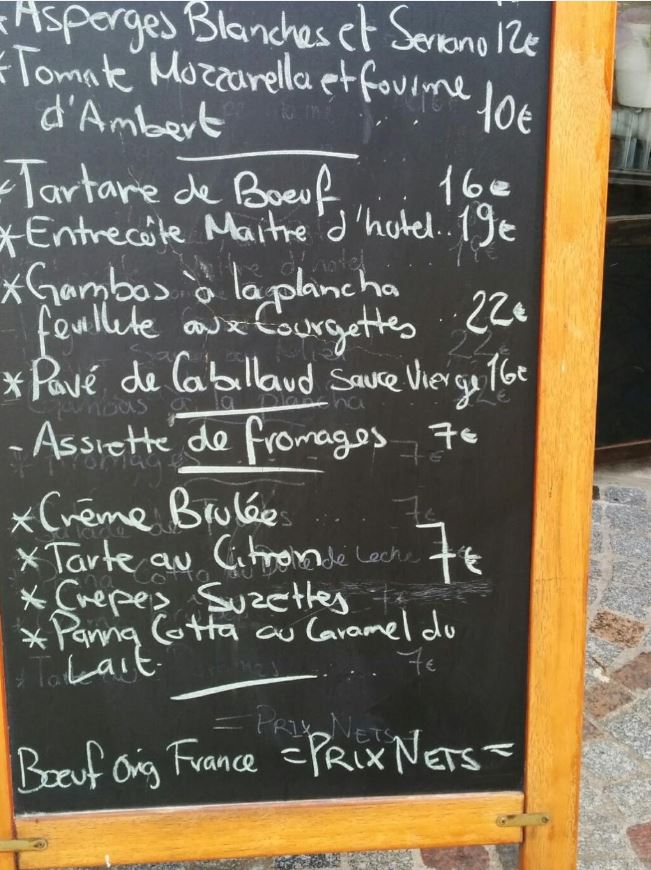 *Asperges Blanches et Serrano 12€
*Tomate Mozzarella et fourme
d'Ambert . . . 10€
*Tartare de Boeuf ... 16€
*Entrecôte Maitre d'hotel.. 19€
*Gambas à la plancha
feuillete aux Courgettes .. 22€
*Pavé de Cabillaud sauce Vierge 16€
- Assiette de fromages 7€
*Crême Brulée
*Tarte au Citron 7€
*Crepes Suzettes
*Panna Cotta au Caramel du
Lait.
Boeuf Orig France =PRIX NETS=